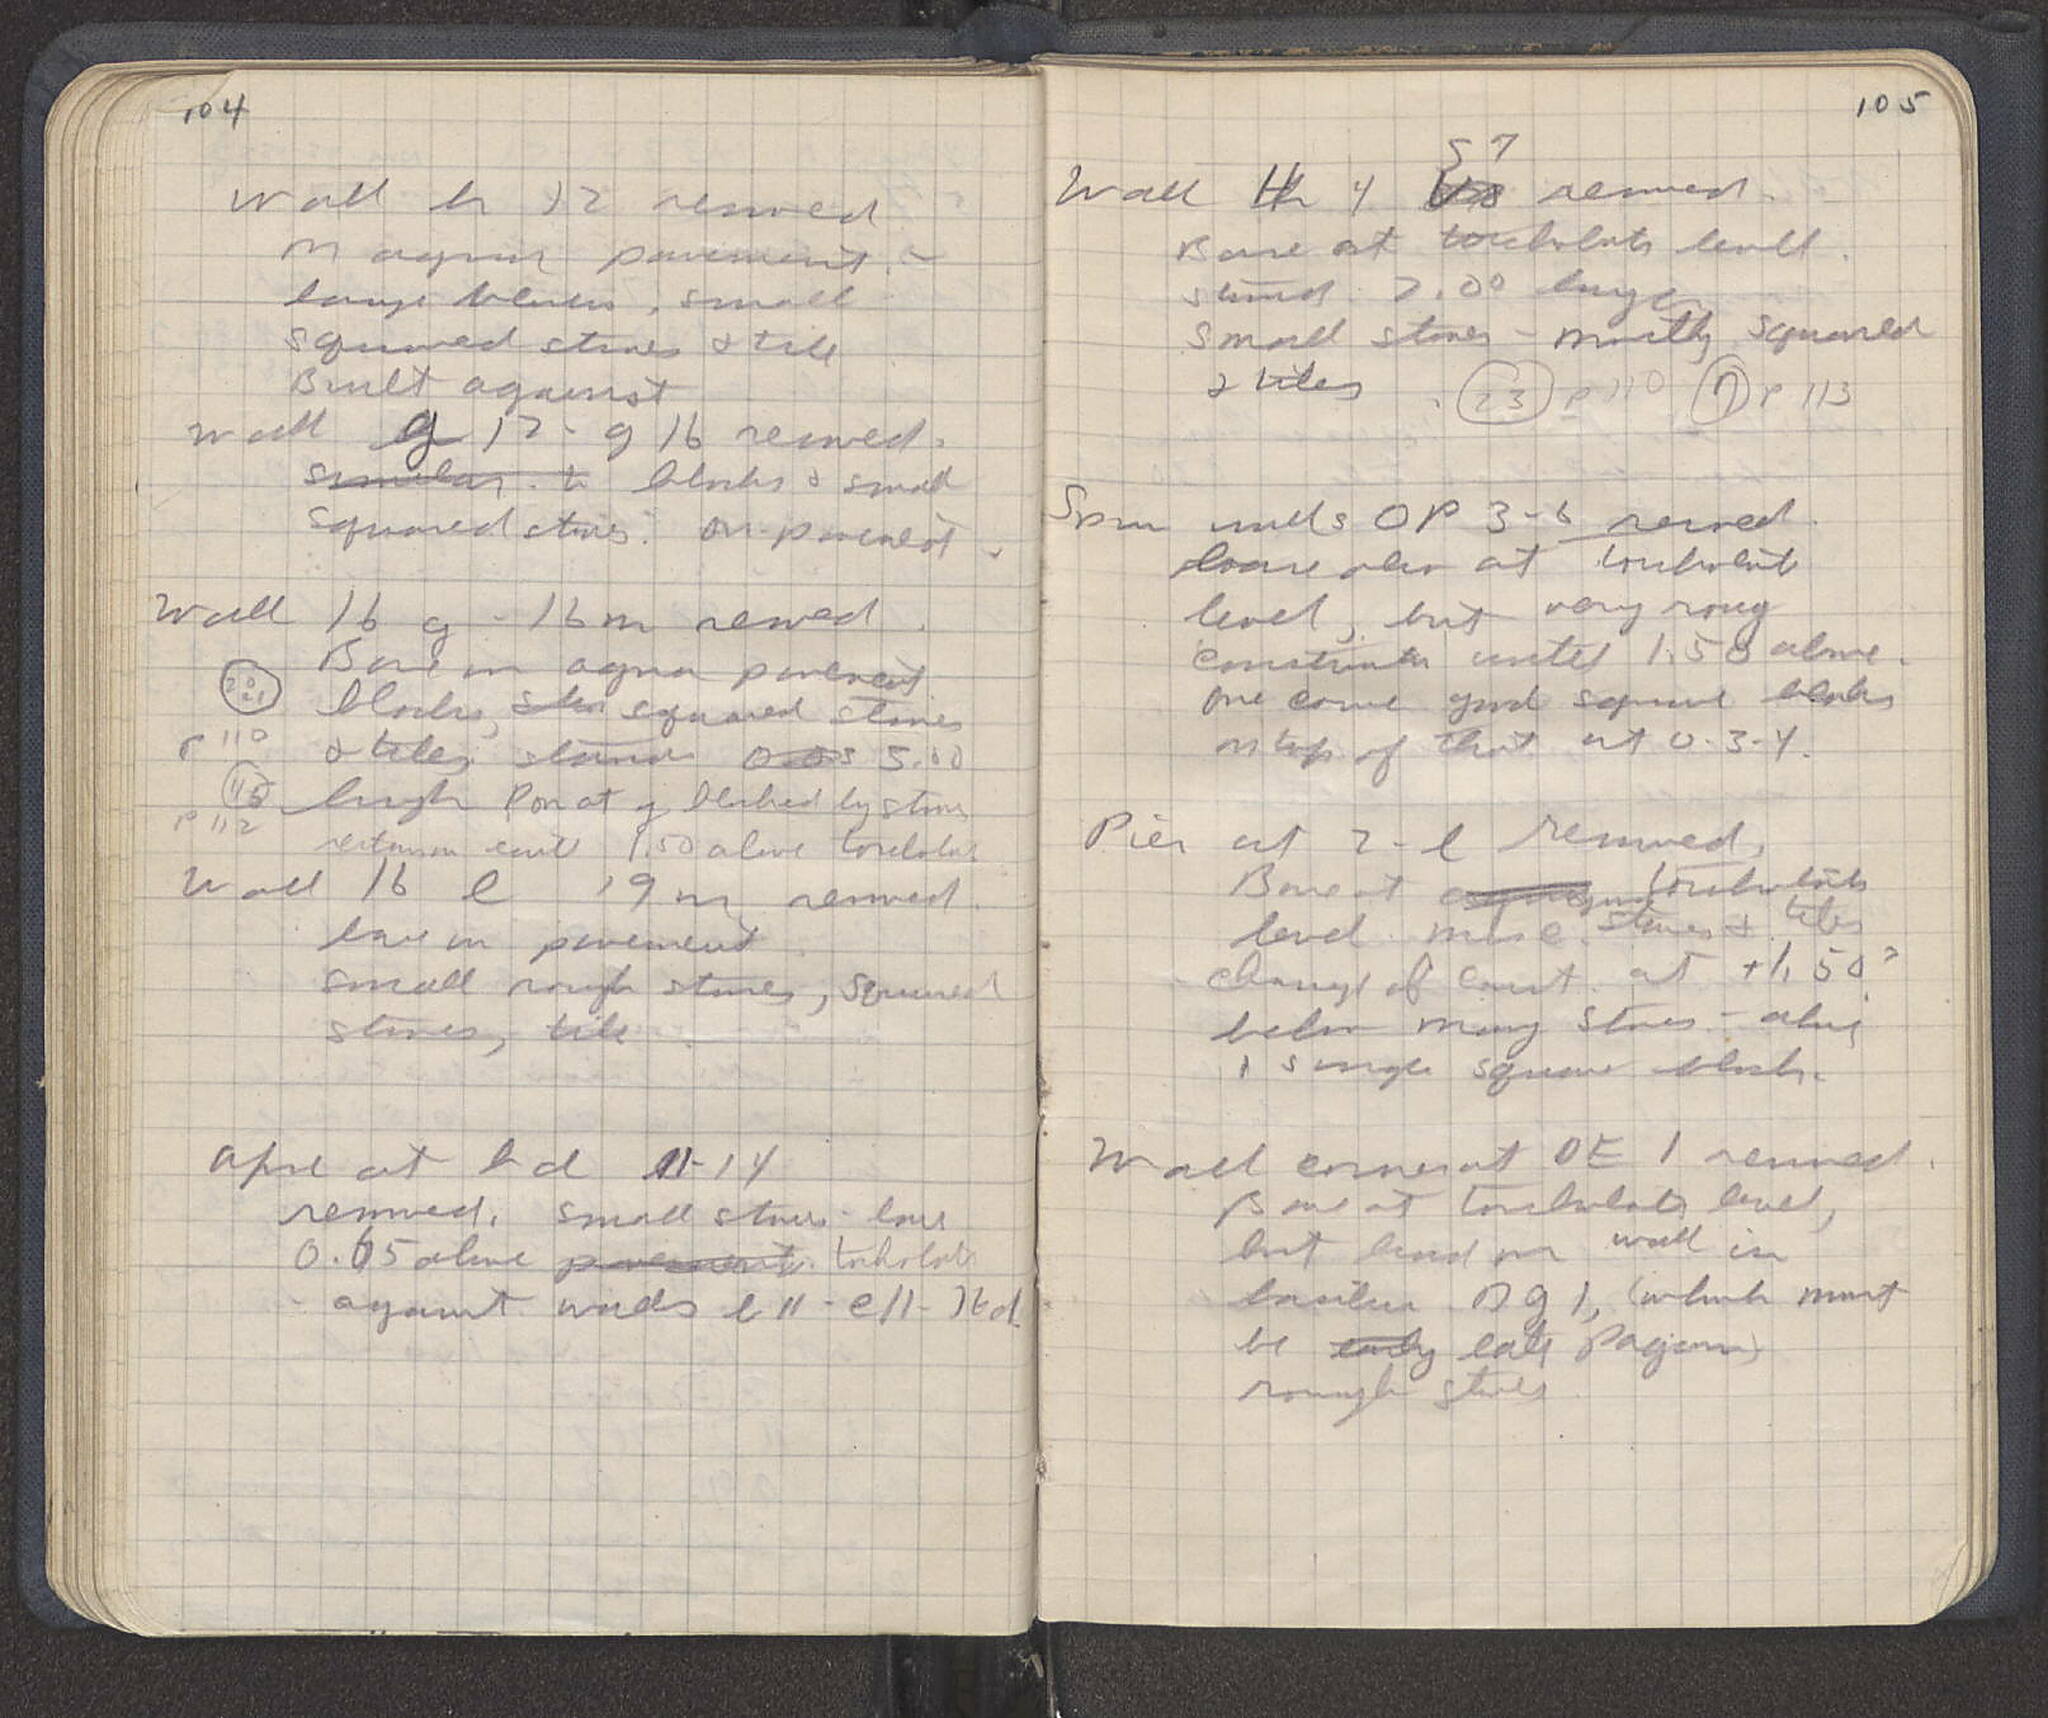 104
Wall h 12 removed
on agora pavement. -
large blocks, small
squared stones & tile
Built against
Wall g 12 - g 16 removed.
similar to blocks & small
squared stones. on pavement.
Wall 16 g - 16 m removed.
Base on agora pavement
20 21 blocks, squared stones
p 110 & tiles stands 5.00
high Door at g blocked by stone
p 112 1.50 above torchobate
Wall 16 l 19 m removed.
base on pavement
small rough stones, squared
stones, tile.
Apse at b d 11-14
removed. small stones - base
0.65 above pavement. torchobate
- against walls b 11 - e 11 - 16 d
105
S 7
Wall H 4 removed.
Base at torchobate level.
stand 2.00 high
small stones - mostly squared
& tiles. 23 p 110 7 p 113
Some walls OP 3-6 removed.
base also at torchobate
level, but very roug
until 1.50 above.
one course good square blocks
on top of that at O-3-4.
Pier at 2-l removed.
Base at torchobate
level. misc. stones & tiles
change of const. at +1.50?
below many stones - above
1 single square block.
Wall corner at DE 1 removed.
Base at torchobate level,
but bond on wall in
basilica g 1, (which must
be early late Pagan)
rough stones